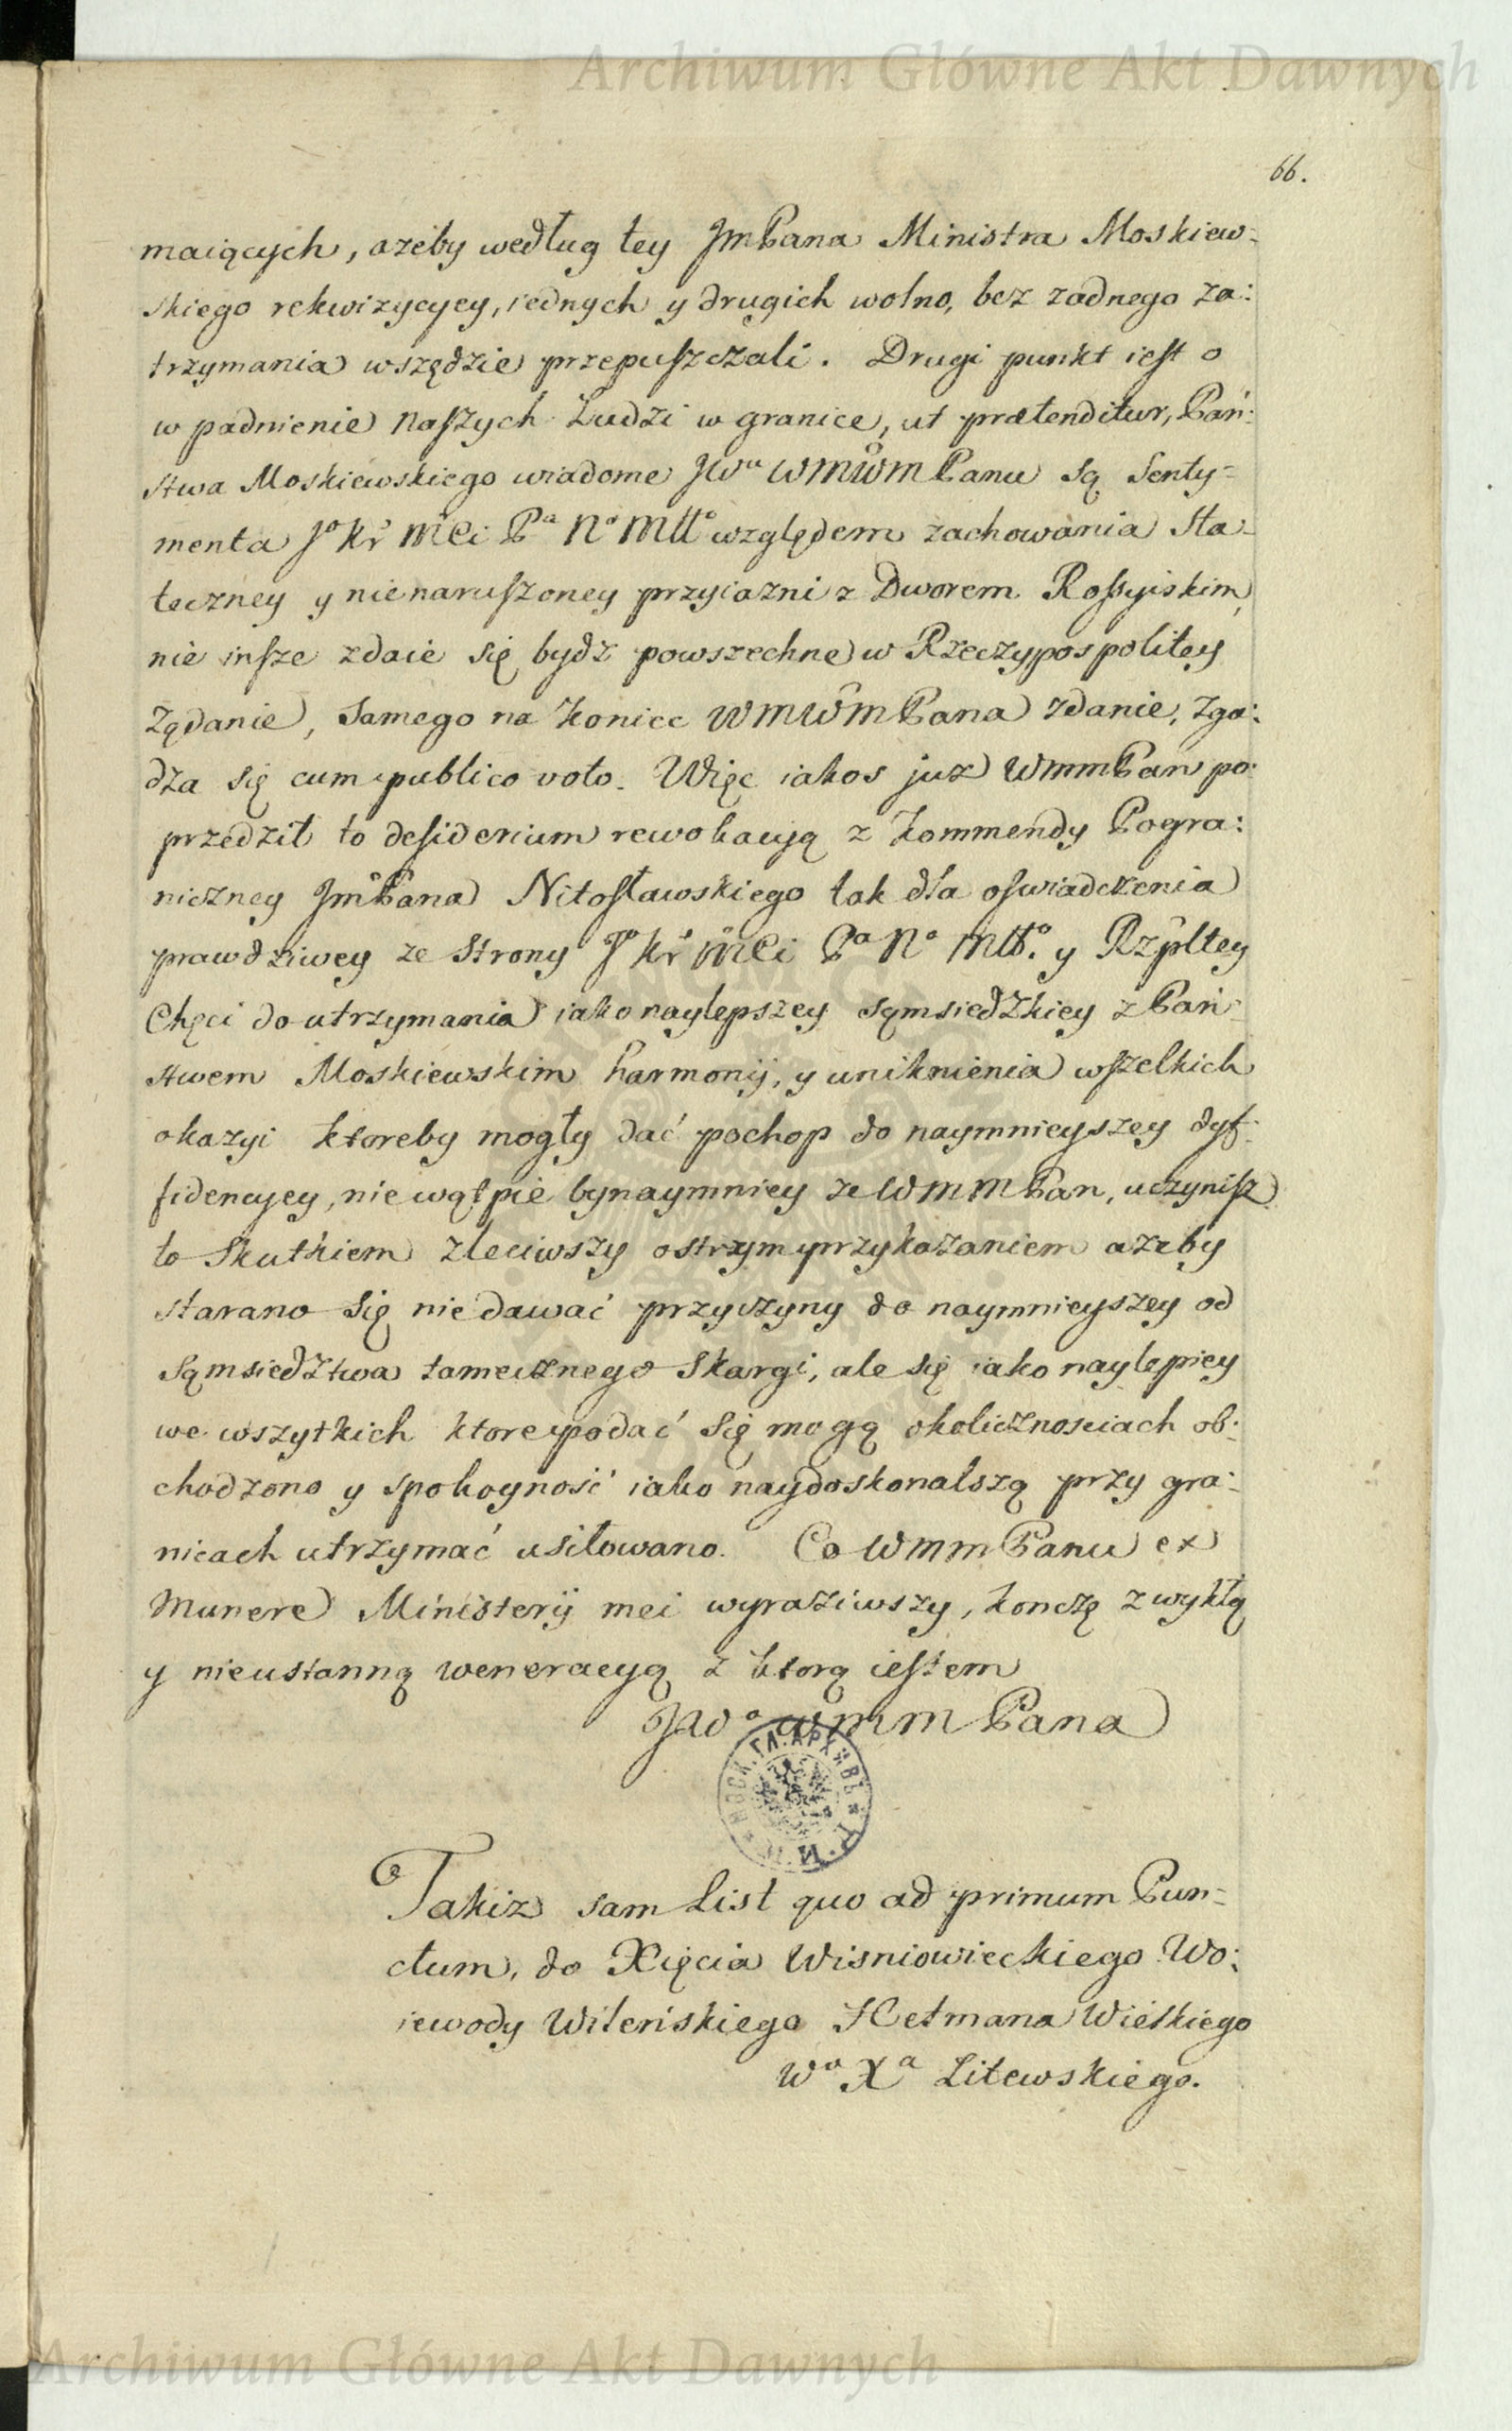 Archiwum Główne Akt Dawnych
66.
maiących, ażeby według tey JmPana Ministra Moskiew-
skiego rekwizycyey, iednych y drugich wolno, bez żadnego za:
trzymania wszędzie przepuszczali. Drugi punkt iest o
wpadnienie Naszych Ludzi w granice, ut prætenditur, Pań:
stwa Moskiewskiego wiadome JWa WMWM Panu są Senty-
menta Jo Kr Mci Pa No Młło względem zachowania Sta-
teczney y nienaruszoney przyiazni z Dworem Rossyiskim,
nie insze zdaie się bydz powszechne w Rzeczypospolitey
Żądanie, Samego na koniec WMWMPana zdanie, zga:
dza się cum publico voto. Więc iakoś juz WMMPan po:
przedził to desiderium rewokaują z kommendy Pogra:
niczney JmPana Nitosławskiego tak dla oswiadczenia
prawdziwey ze Strony Jo Kr Mci Pa No Młło. y Rzpltey
Chęci do utrzymania iako naylepszey sąmsiedzkiey z Pań-
stwem Moskiewskim harmonij, y uniknienia wszelkich
okazyi ktoreby mogły dać pochop do naymnieyszey dyf-
fidencyey, nie wątpię bynaymniey ze WMMPan, uczynisz
to Skutkiem zleciwszy ostrym przykazaniem ażeby
starano się nie dawać przyczyny do naymnieyszey od
Sąmsiedztwa tamecznego Skargi, ale się iako naylepiey
we wszytkich ktore podać się mogą okolicznosciach ob:
chodzono y spokoyność iako naydoskonalszą przy gra:
nicach utrzymać usiłowano. Co WMMPanu ex
Munere Ministerij mei wyraziwszy, konczę zwykłą
y nieustanną weneracyą z ktorą iestem
JWo WMMPana
МОСК. ГЛ. АРХИВЪ М. И. Д.
Takiz sam List quo ad primum Pun-
ctum, do Xięcia Wisniowieckiego Wo:
iewody Wileńskiego Hetmana Wielkiego
Wo Xa Litewskiego.
Archiwum Główne Akt Dawnych